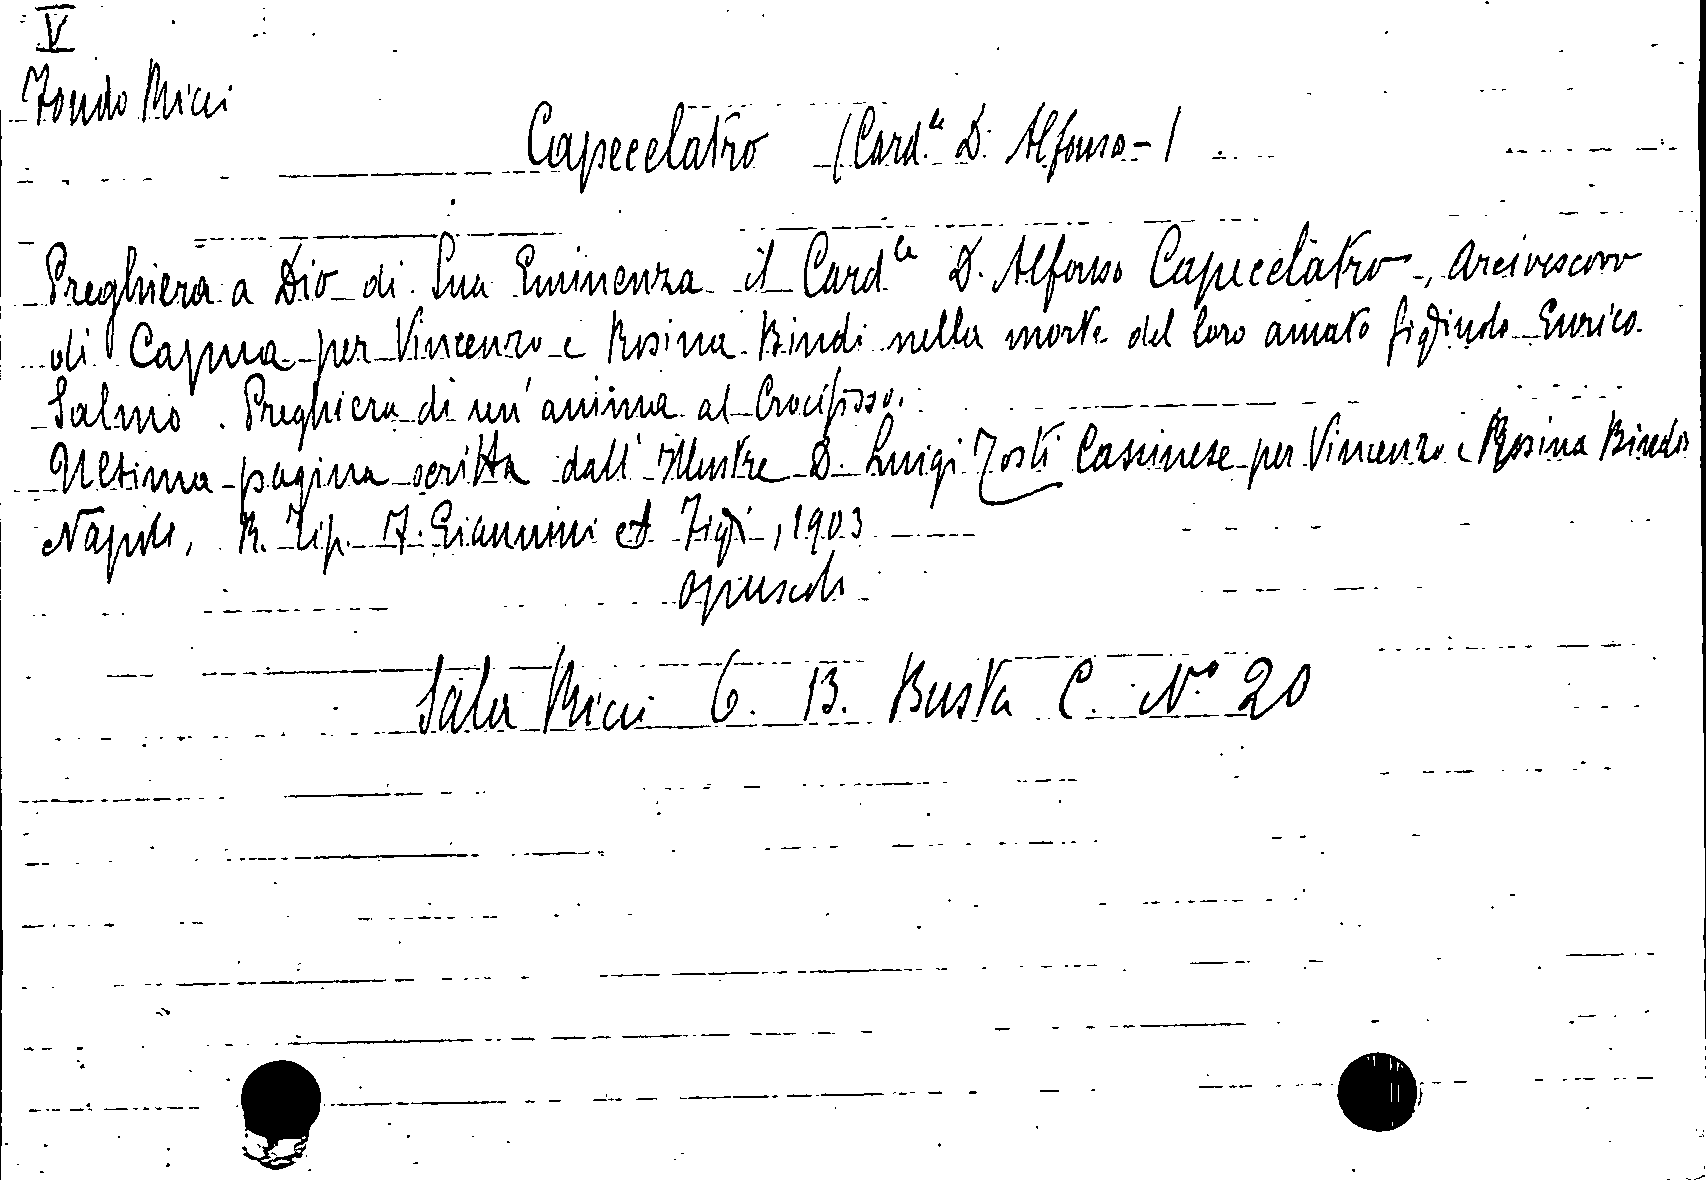 V
Fondo Ricci
Capecelatro (Card.le D. Alfonso-)
Preghiera a Dio di Sua Eminenza il Card.le D. Alfonso Capecelatro, Arcivescovo
di Capua per Vincenzo e Rosina Bindi nella morte del loro amato figliuolo Enrico.
Salmo. Preghiera di un'anima al Crocifisso.
Ultima pagina scritta dall'illustre D. Luigi Tosti Cassinese per Vincenzo e Rosina Bindi
Napoli, R. Tip. F. Giannini et Figli, 1903
opuscolo
Sala Ricci 6. B. Busta C. N.° 20